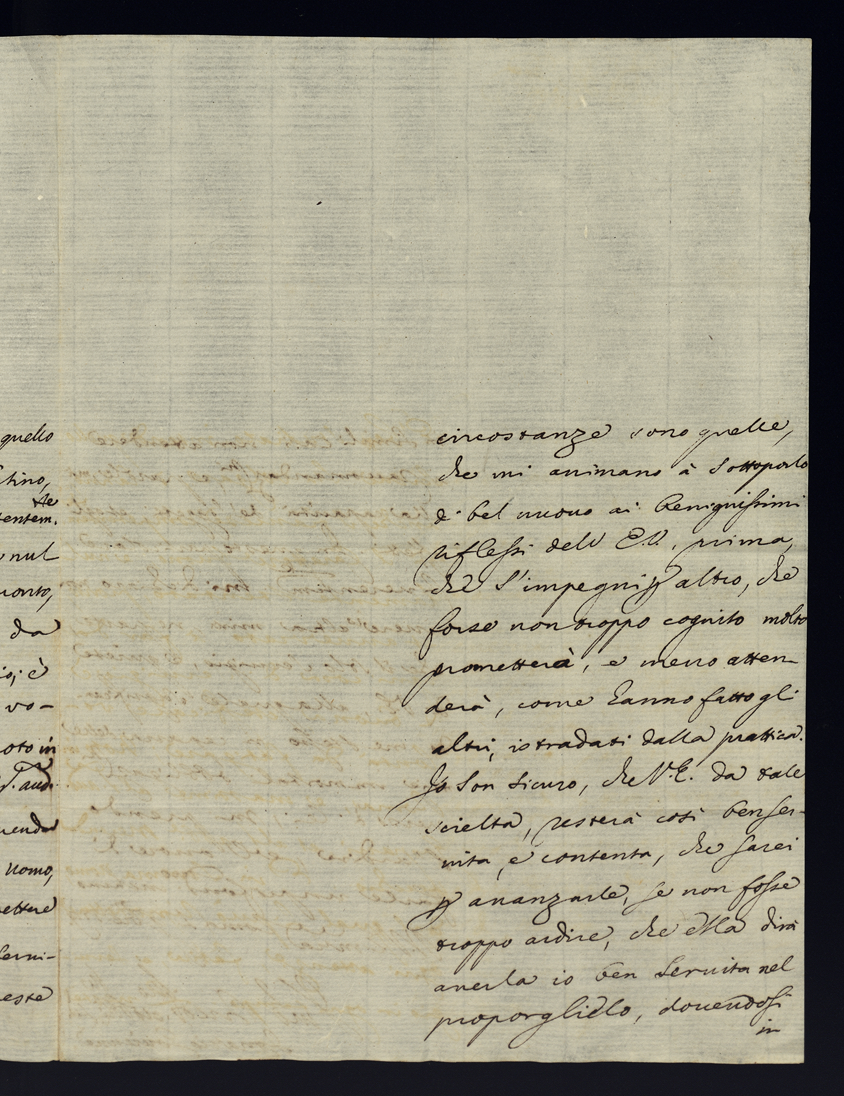 quello
tino,
te
tentem.
nul
ronto,
da
io; è
vo-
oto in
uendo
uomo,
ettere
serui-
este
circostanze sono quelle,
che mi animano à sottoporlo
di bel nuouo ai benignissimi
riflessi dell' E.V., prima,
che s'impegni p altro, che
forse non troppo cognito molto
prometterà, e meno atten-
derà, come hanno fatto gli
altri, istradati dalla prattica.
Jo son sicuro, che V.E. da tale
scielta, resterà così ben ser-
uita, e contenta, che sarei
p auanzarle, se non fosse
troppo ardire, che ella dirà
auerla io ben seruita nel
proporglielo, douendosi
in